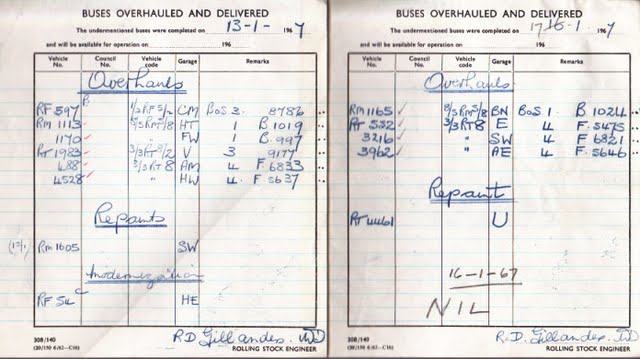 BUSES OVERHAULED AND DELIVERED
The undermentioned buses were completed on 13-1- 1967
and will be available for operation on 196
Vehicle No. Council No. Vehicle code Garage Remarks
Overhauls
RF 597 1/3 RF 5/2 CM BoS 3. 8786
RM 1113 HT 1 B 1019
1170 " FW 1 B. 997
RT 1983 3/3 RT 8/2 V 3 9177
488 3/3 RT 8 AM 4 F. 6833
4528 " HW 4. F. 5637
Repaints
RM 1605 SW
modernization
RF 54 C HE
308/140
R.D. Gillandes.
ROLLING STOCK ENGINEER
BUSES OVERHAULED AND DELIVERED
The undermentioned buses were completed on 1716-1. 1967
and will be available for operation on 196
Vehicle No. Council No. Vehicle code Garage Remarks
Overhauls
RM 1165 8/3 RM 5/8 BN BoS 1. B 1024
RT 532 3/3 RT 8 E 4 F. 5475
3216 " SW 4 F 6821
3962 " AE 4. F. 5646
Repaint
RT 4461 U
16-1-67
NIL
308/140
R.D. Gillandes.
ROLLING STOCK ENGINEER